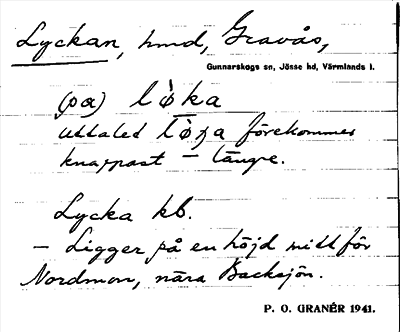 Lyckan, hmd, Gravås,
Gunnarskogs sn, Jösse hd, Värmlands l.
(på) lø̀ka
uttalet lø̀ʒa förekommer
knappast – längre.
Lycka kb.
– Ligger på en höjd mitt för
Nordmon, nära Backsjön.
P. O. GRANÉR 1941.